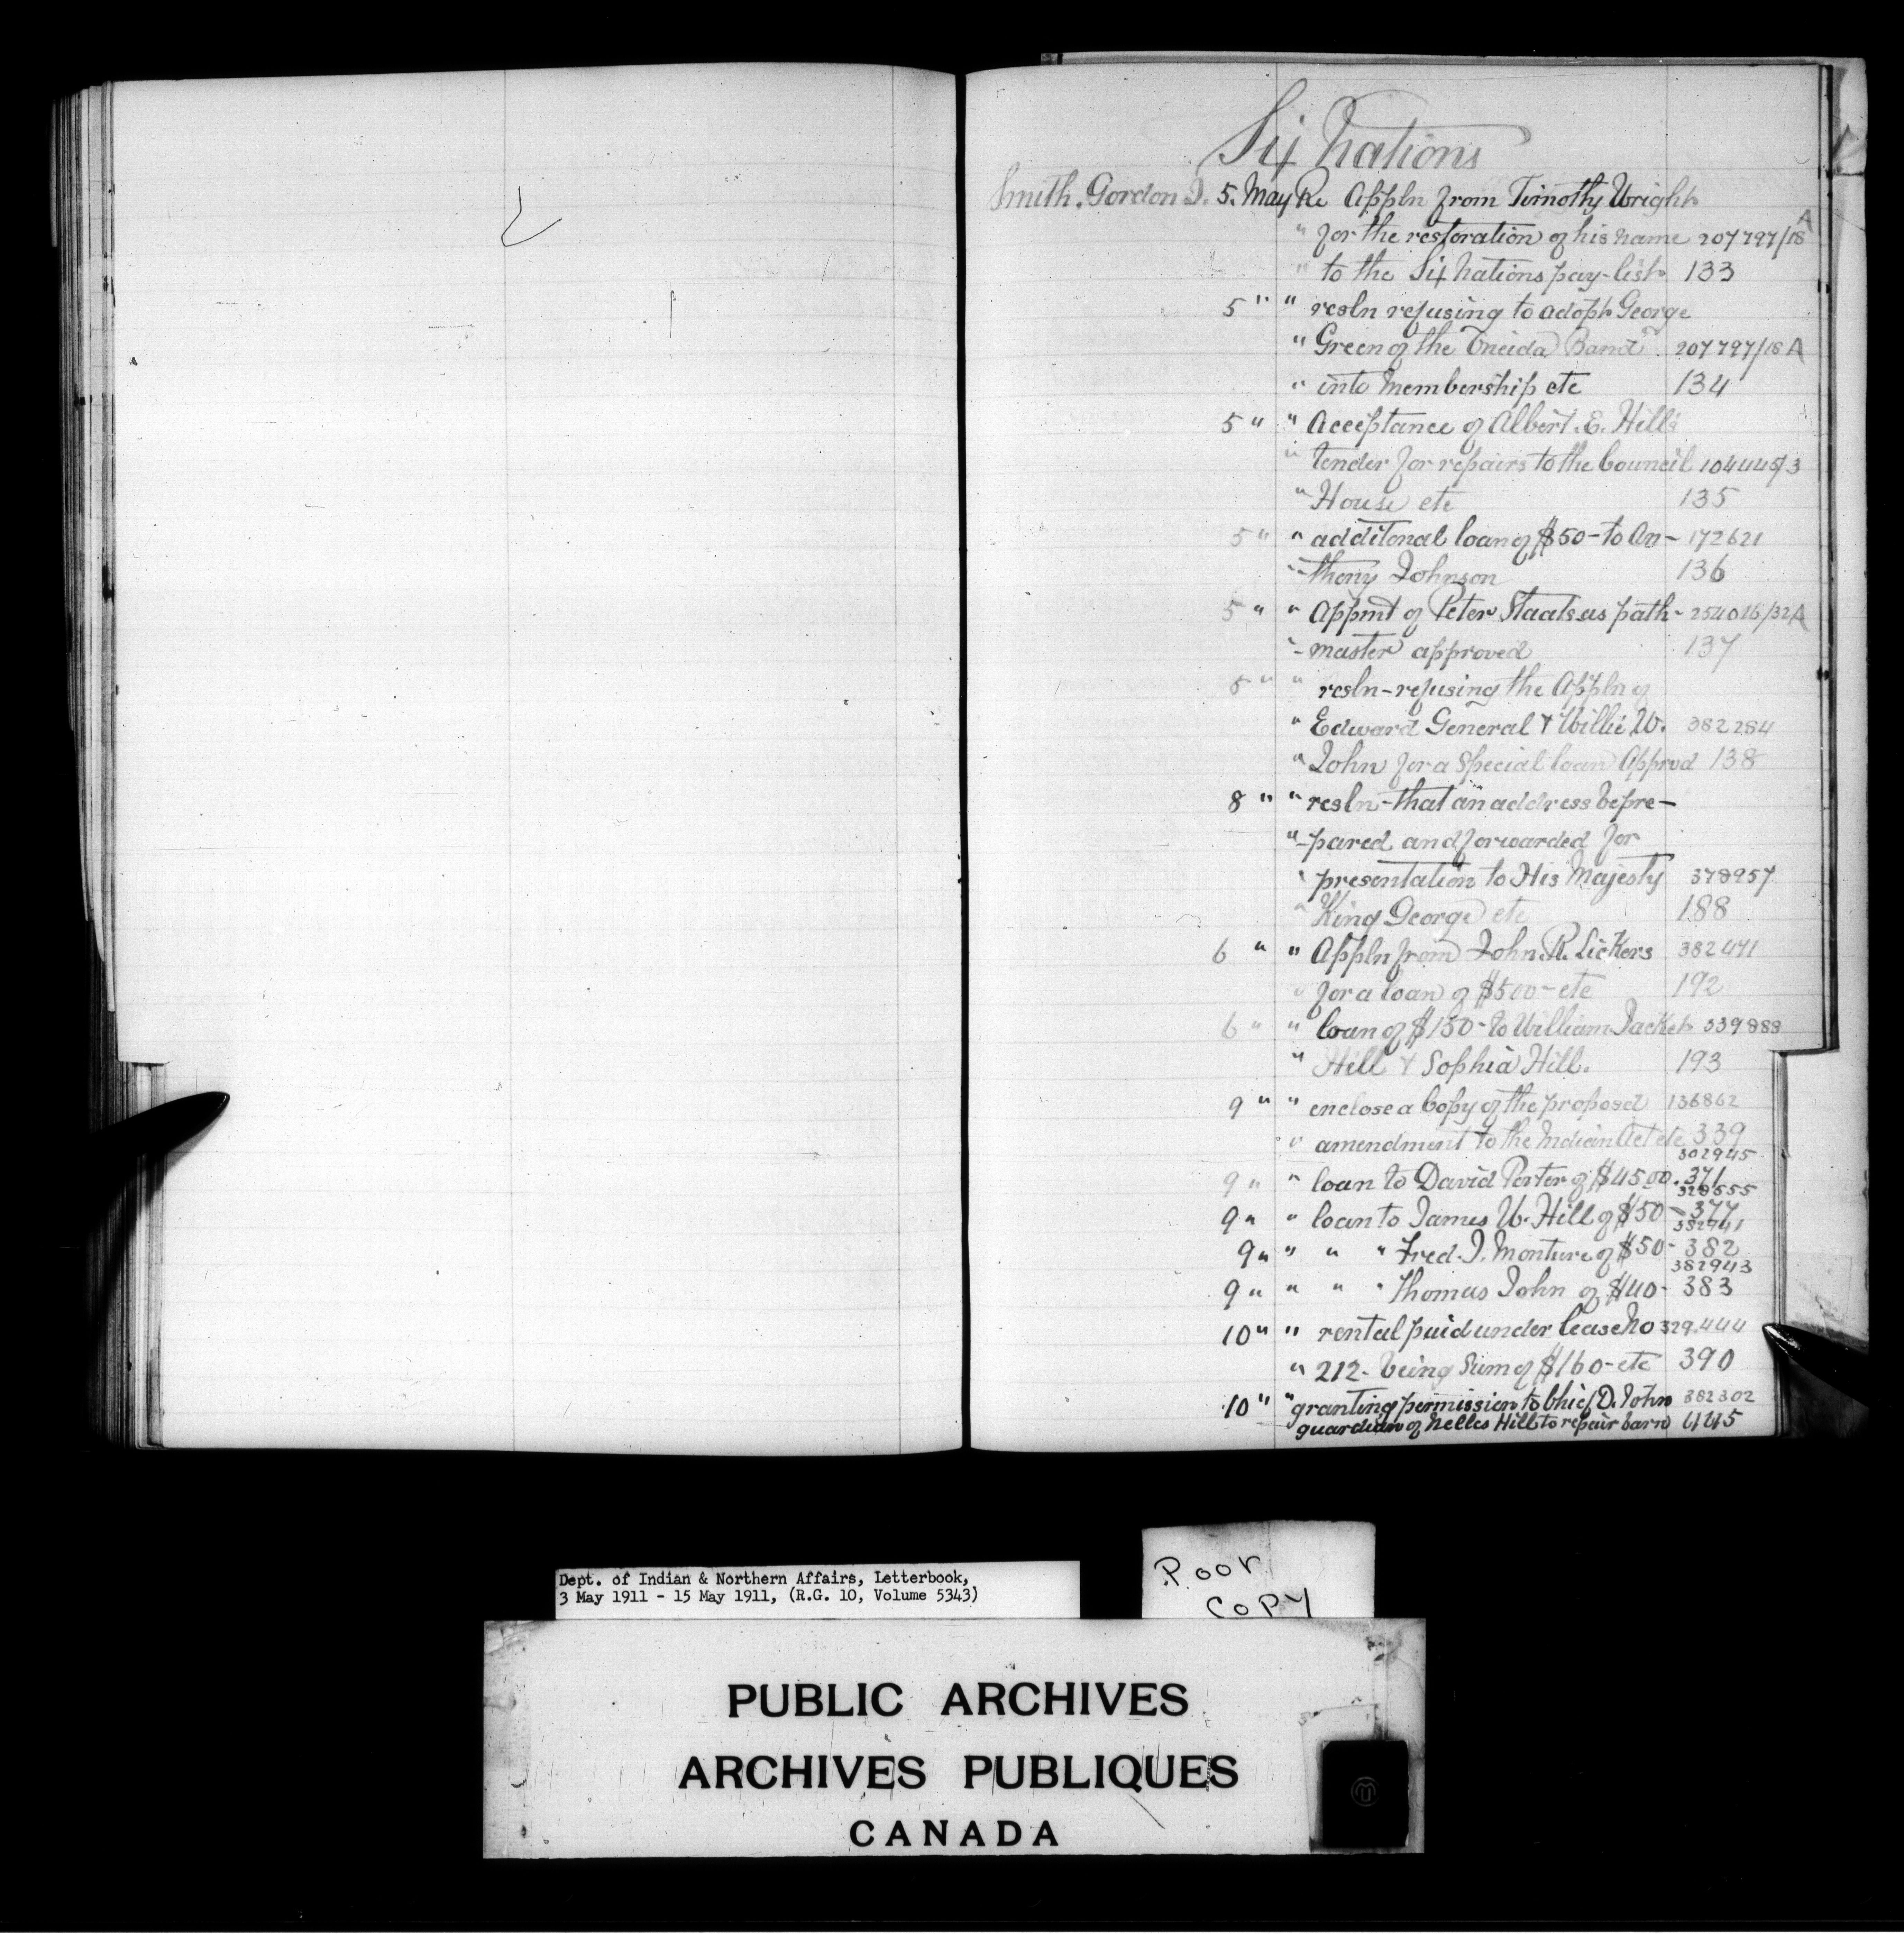 Six Nations
Smith. Gordon J. 5. May Re Appln from Timothy Wright
" for the restoration of his name 207797/18 A
" to the Six Nations pay-list 133
5 " " resln refusing to adopt George
" Green of the Oneida Band 207797/18 A
" into Membership etc 134
5 " " Acceptance of Albert. E. Hill's
" tender for repairs to the Council 104445/3
" House etc 135
5 " " additonal loan of $50- to An- 172621
" -thony Johnson 136
5 " " Appmt of Peter Staats as path- 254016/32A
" -master approved 137
5 " " resln-refusing the Appln of
" Edward General & Willie W. 382284
" John for a Special loan Approd 138
8 " " resln-that an address be pre-
" -pared and forwarded for
" presentation to His Majesty 378957
" King George etc 188
6 " " Appln from John. R. Lickers 382471
" for a loan of $500- etc 192
6 " " loan of $150- to William Jacket 339888
" Hill & Sophia Hill. 193
9 " " enclose a Copy of the proposed 136862
" amendment to the Indian Act etc 339
302945
9 " " loan to David Porter of $45.00. 371
328555
9 " " loan to James W. Hill of $50- 377
382941
9 " " " " Fred. J. Monture of $50- 382
382943
9 " " " " Thomas John of $40- 383
10 " " rental paid under lease No 329.444
" 212- being Sum of $160- etc 390
10 " " granting permission to Chief D. John 382302
guardian of Nelles Hill to repair barn 445
Dept. of Indian & Northern Affairs, Letterbook,
3 May 1911 - 15 May 1911, (R.G. 10, Volume 5343)
Poor
COPY
PUBLIC ARCHIVES
ARCHIVES PUBLIQUES
CANADA